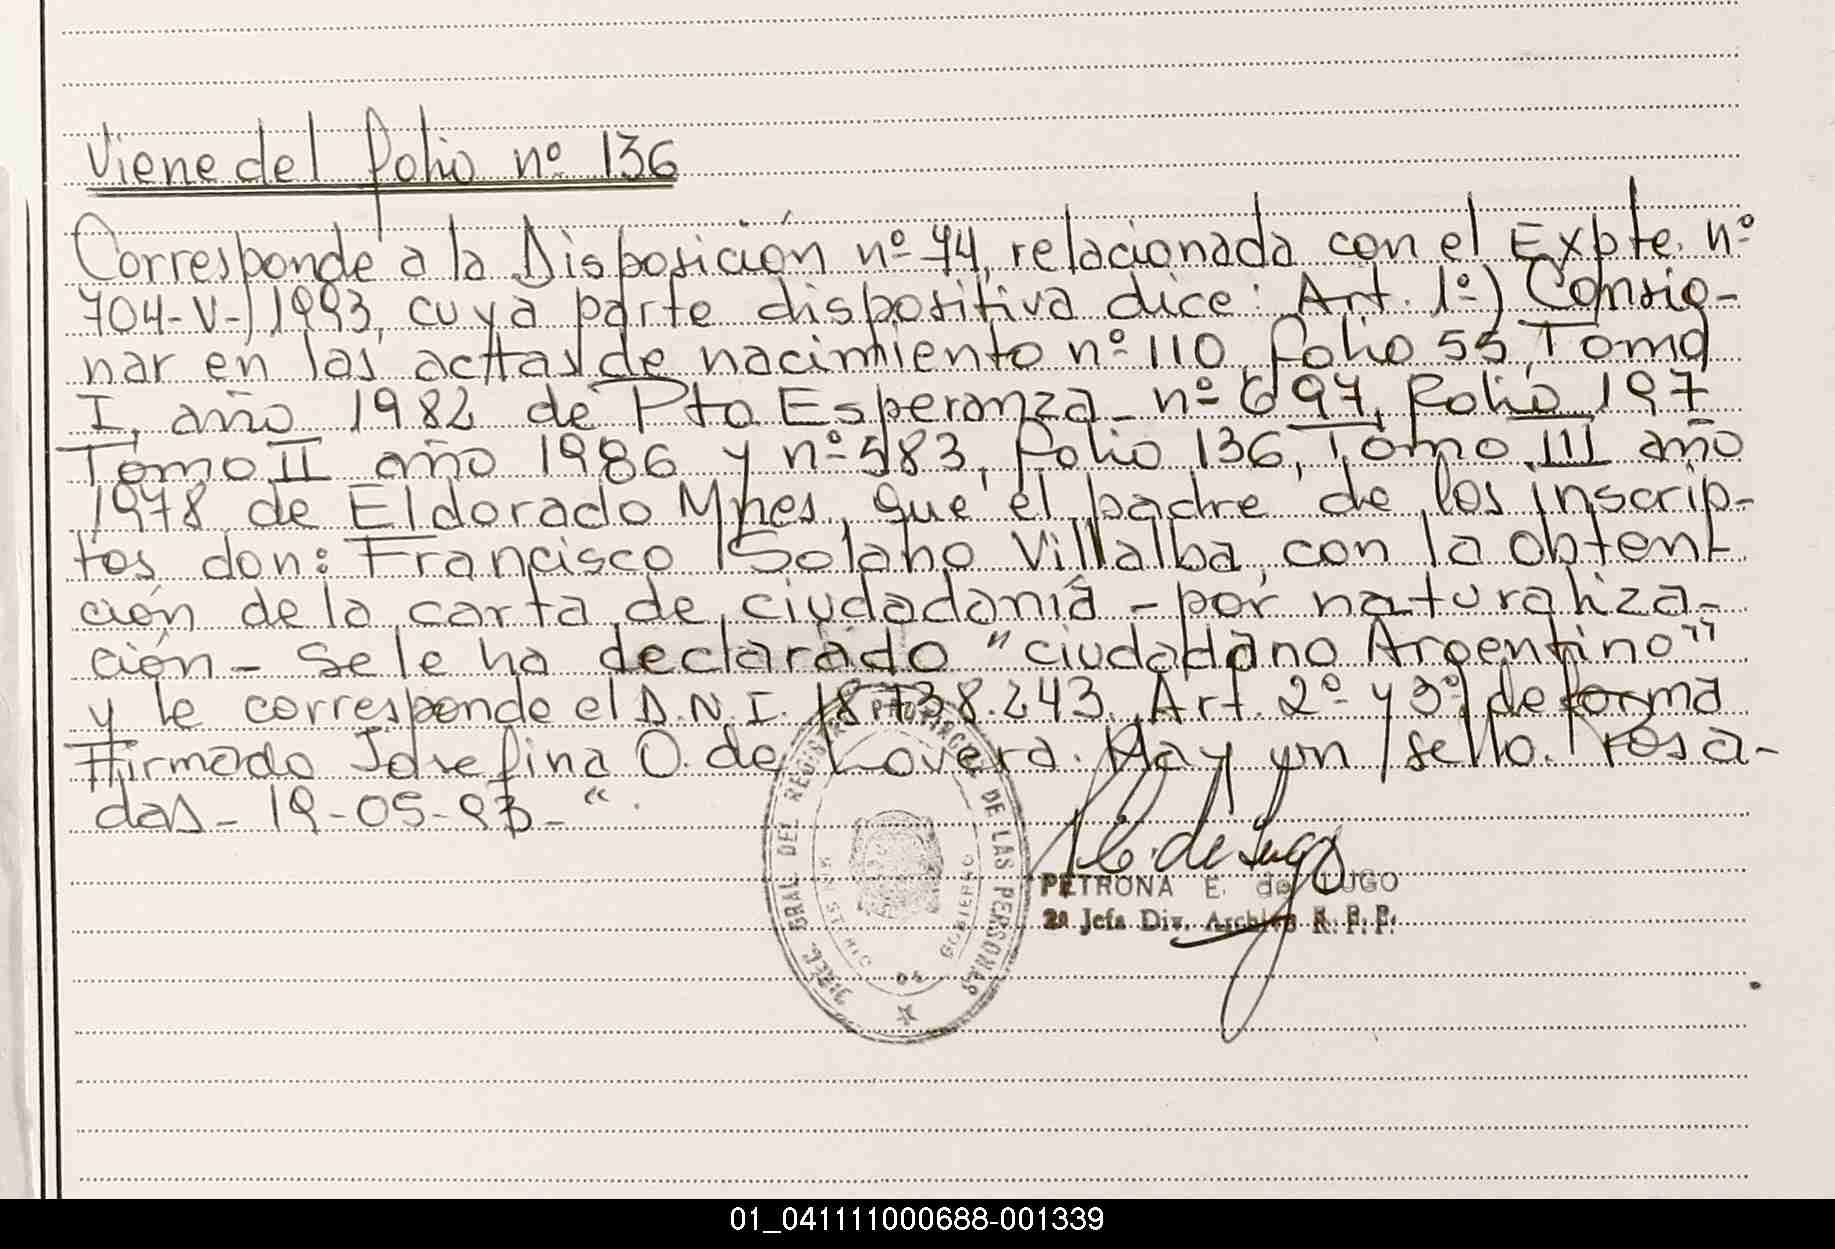 Viene del folio nº 136
Corresponde a la Disposición nº 74, relacionada con el Expte. nº
704-V-1993, cuya parte dispositiva dice: Art. 1º) Consig-
nar en las acttas de nacimiento nº 110, folio 55, Tomo
I, año 1982 de Pto Esperanza - nº 697, folio 197
Tomo II año 1986 y nº 583, folio 136, Tomo III año
1978 de Eldorado Mnes, que el padre de los inscrip-
tos don: Francisco Solano Villalba, con la obtent
ción de la carta de ciudadaniá - por naturaliza-
ción - se le ha declarado "ciudadano Argentino"
y le corresponde el D.N.I. 18.738.243. Art. 2º y 3º) de forma
Firmado Josefina O. de Lovera. Hay un sello. Posa-
das - 19-05-93 - ".
DIREC. GRAL DEL REGISTRO PROVINCIAL DE LAS PERSONAS
MINISTERIO DE GOBIERNO
PETRONA E. de LUGO
2a Jefa Div. Archivo R. P. P.
01_041111000688-001339